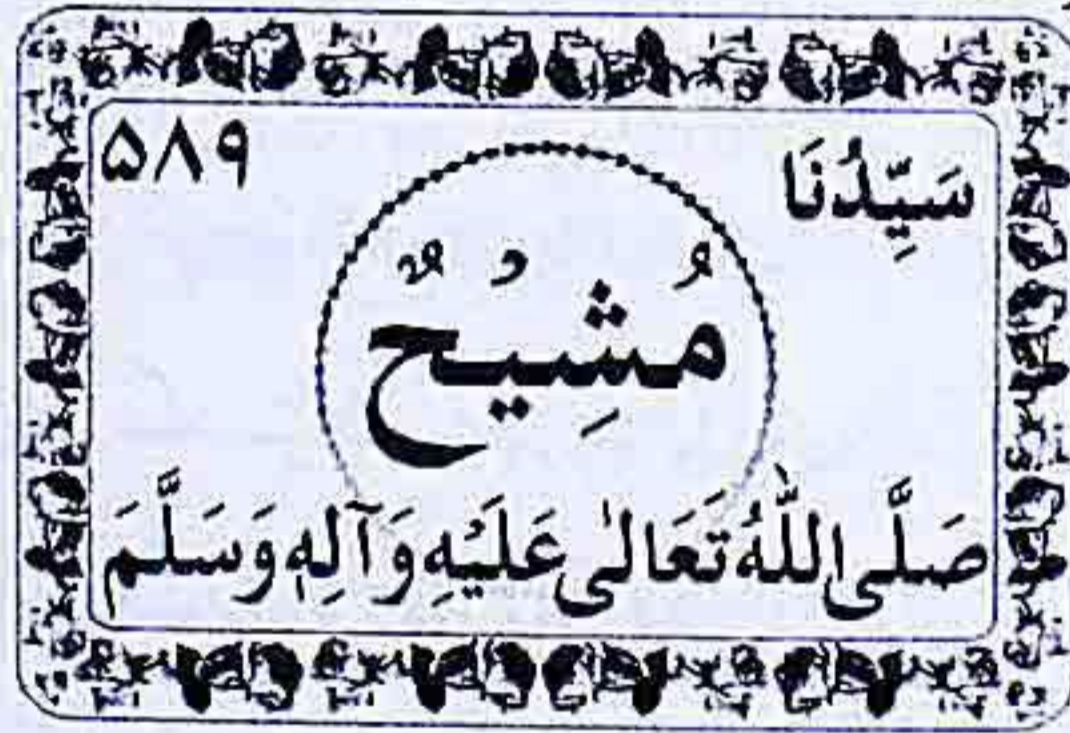 سَيِّدُنَا ۵۸۹
مُشِيْحٌ
صَلَّى اللّٰهُ تَعَالٰى عَلَيْهِ وَآلِهٖ وَسَلَّمَ